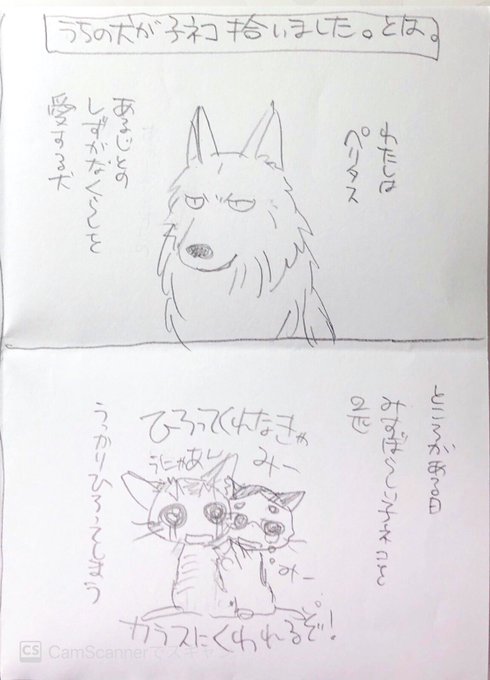 うちの犬が子ネコ拾いました。とは。
わたしは
ペリタス
あるじとの
しずかなくらしを
愛する犬
ところがある日
2匹
ひろってくれなきゃ
うにゃあー
みー
みー
カラスにくわれるぞ!
うっかりひろってしまう
CS CamScannerでスキャン